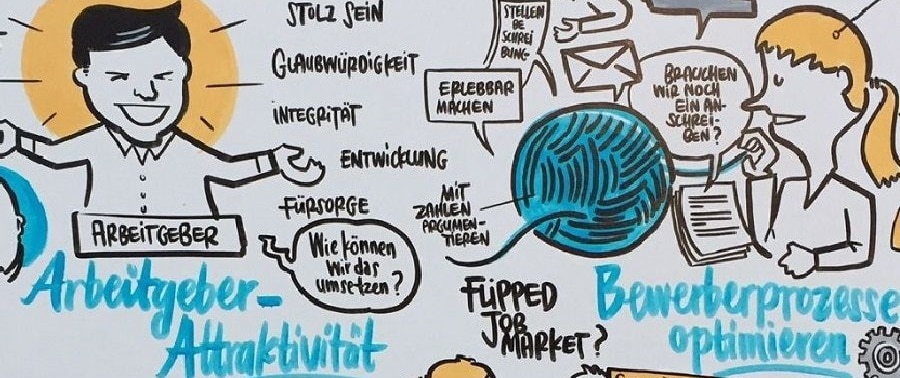 STOLZ SEIN
GLAUBWÜRDIGKEIT
INTEGRITÄT
ENTWICKLUNG
FÜRSORGE
ARBEITGEBER
Wie können
wir das
umsetzen?
Arbeitgeber-
Attraktivität
STELLEN
BE
SCHREI
BUNG
ERLEBBAR
MACHEN
MIT
ZAHLEN
ARGUMEN-
TIEREN
BRAUCHEN
WIR NOCH
EIN AN-
SCHREI-
BEN?
FLIPPED
JOB
MARKET?
Bewerberprozesse
optimieren